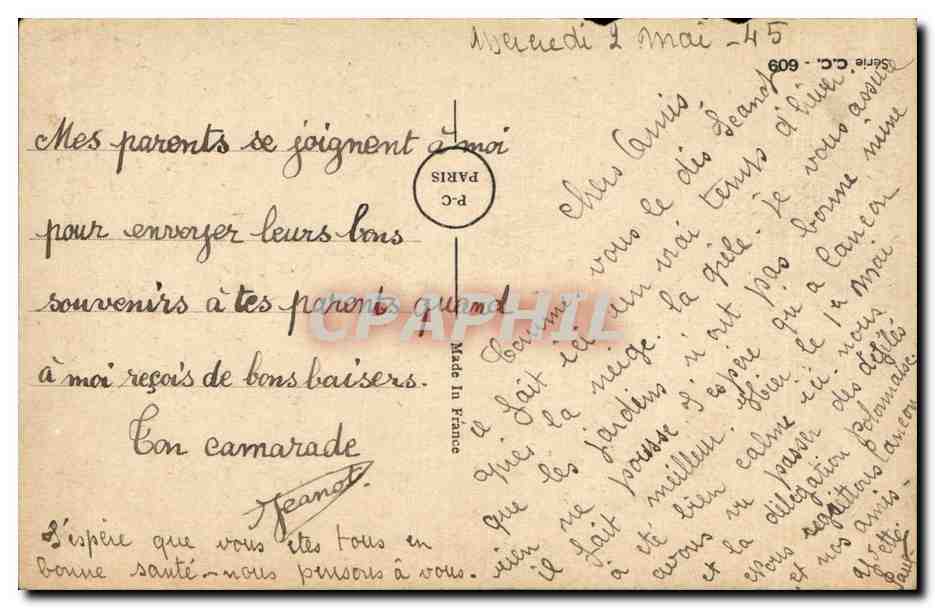 Mercredi 2 mai - 45
Série C.C. - 609
Mes parents se joignent à moi
pour envoyer leurs bons
souvenirs à tes parents quand
à moi reçois de bons baisers.
Ton camarade
Jeanot.
J'espère que vous êtes tous en
bonne santé - nous pensons à vous.
P-C
PARIS
Made In France
CPAPHIL
Chers Amis.
Comme vous le dis Jeanot
il fait ici un vrai temps d'hiver
après la neige. la grêle. Je vous assure
que les jardens n'ont pas bonne mine
rien ne pousse. J'espère qu'a Lancon
il fait meilleur. Hier le 1er mai
à été bien calme ici. nous
avons vu passer des défilés
et la délégation Polonaise.
Nous regrettons Lancon
et nos amis.
Yvette.
Paul